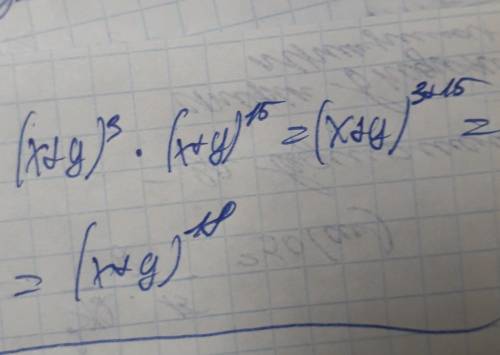 (x+y)³ · (x+y)¹⁵ = (x+y)³⁺¹⁵ =
= (x+y)¹⁸